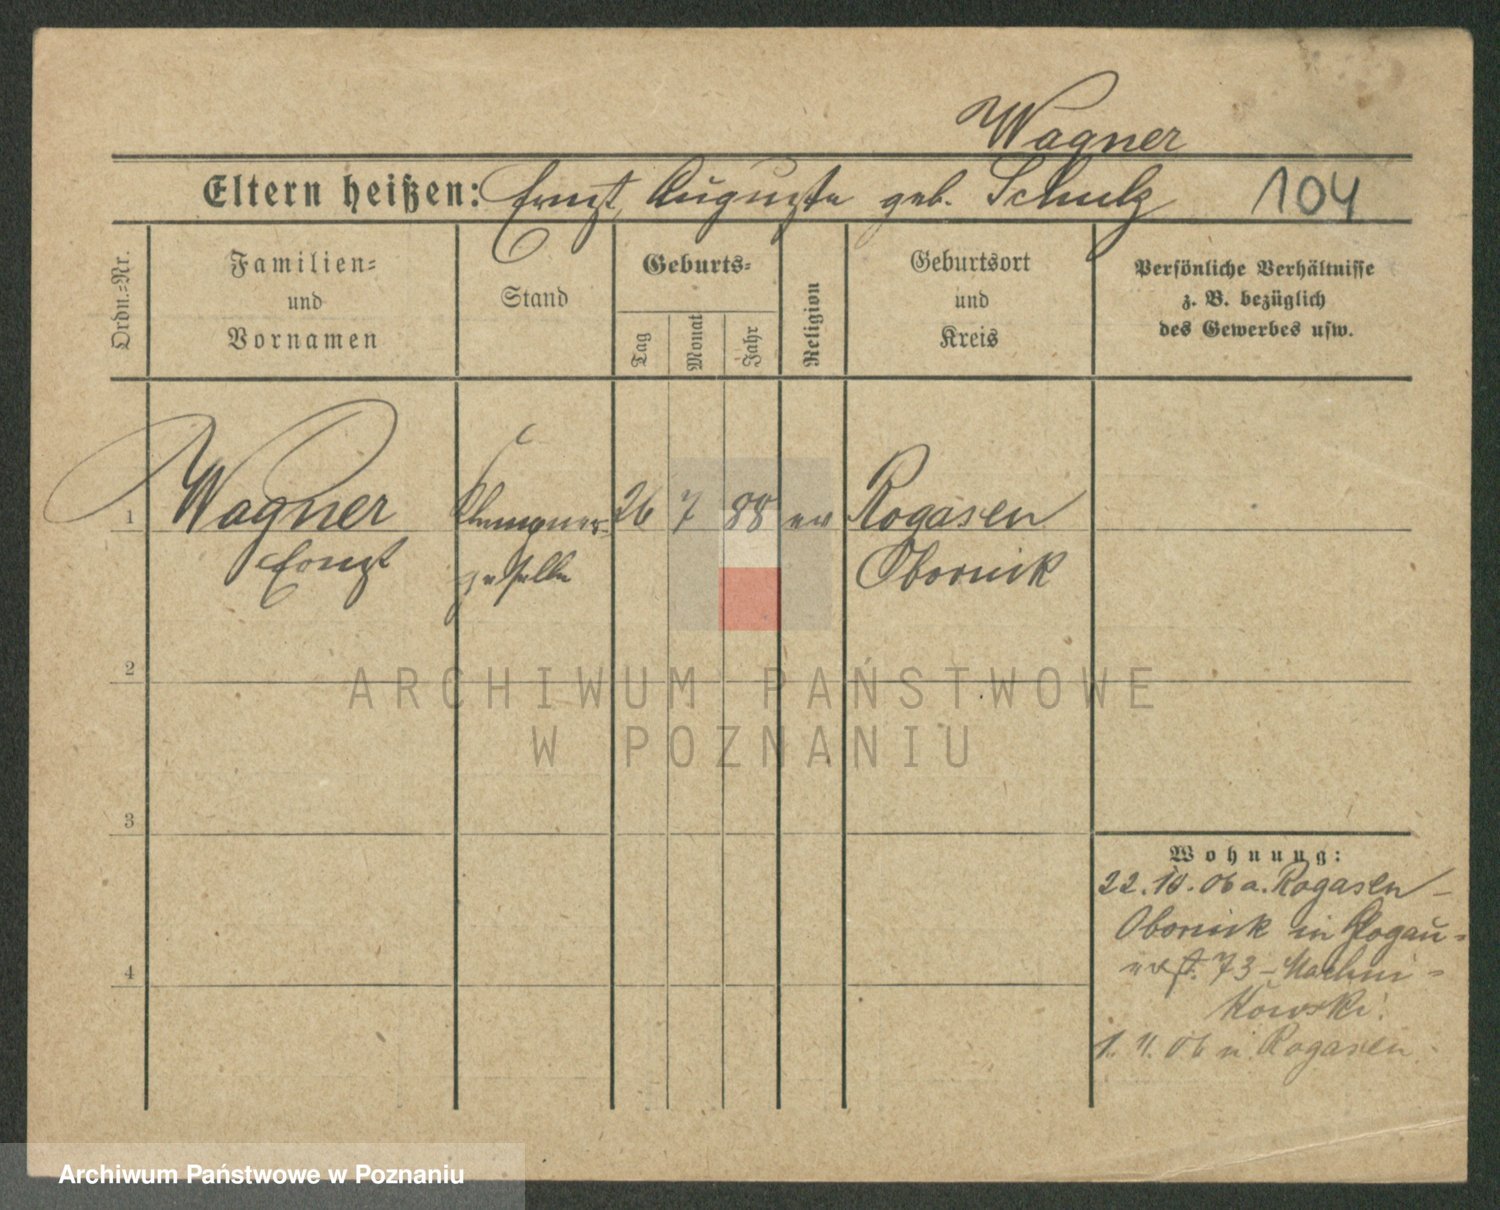 Wagner
Eltern heißen: Ernst, Auguste geb. Schulz 104
Ordn.-Nr.
Familien-
und
Vornamen
Stand
Geburts-
Tag
Monat
Jahr
Religion
Geburtsort
und
Kreis
Persönliche Verhältnisse
z. B. bezüglich
des Gewerbes usw.
1 Wagner Klempner- 26 7 88 ev Rogasen
Ernst geselle Obornik
2
ARCHIWUM PAŃSTWOWE
W POZNANIU
3
Wohnung:
22. 10. 06 a. Rogasen-
Obornik in Glogau-
erst. 73-
4
1. 11. 06 n. Rogasen
Archiwum Państwowe w Poznaniu